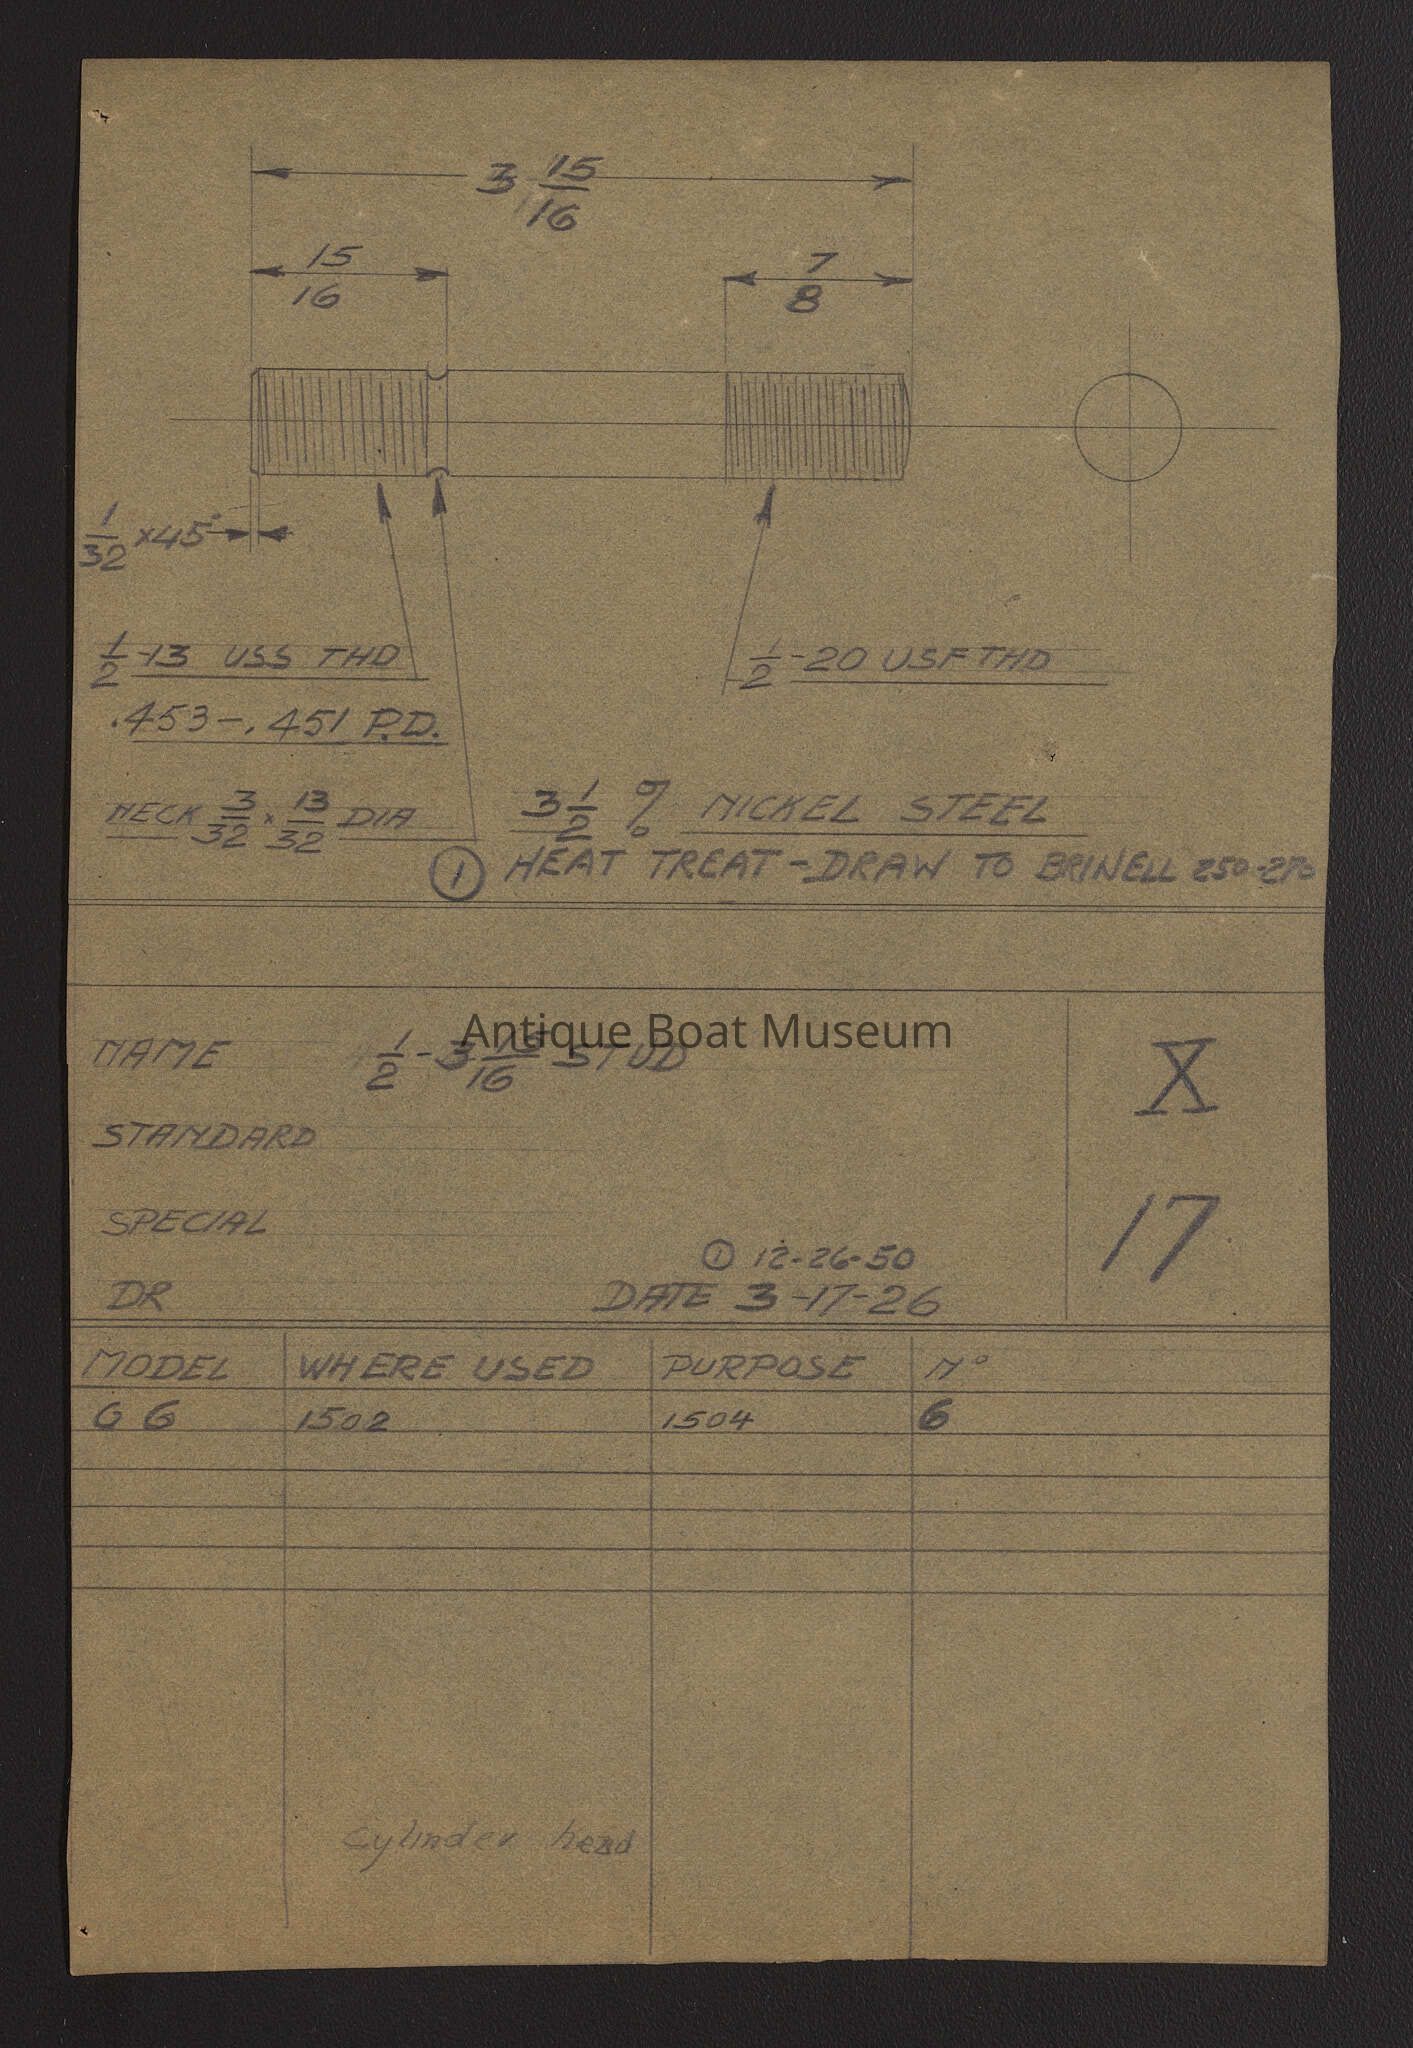 3 15/16
15/16
7/8
1/32 x45°
1/2-13 USS THD
1/2-20 USF THD
.453-.451 P.D.
NECK 3/32 x 13/32 DIA
3 1/2 % NICKEL STEEL
① HEAT TREAT - DRAW TO BRINELL 250-270
Antique Boat Museum
NAME 1/2 - 3 15/16 STUD
X
STANDARD
17
SPECIAL
① 12-26-50
DR DATE 3-17-26
MODEL WHERE USED PURPOSE Nº
G 6 1502 1504 6
Cylinder head